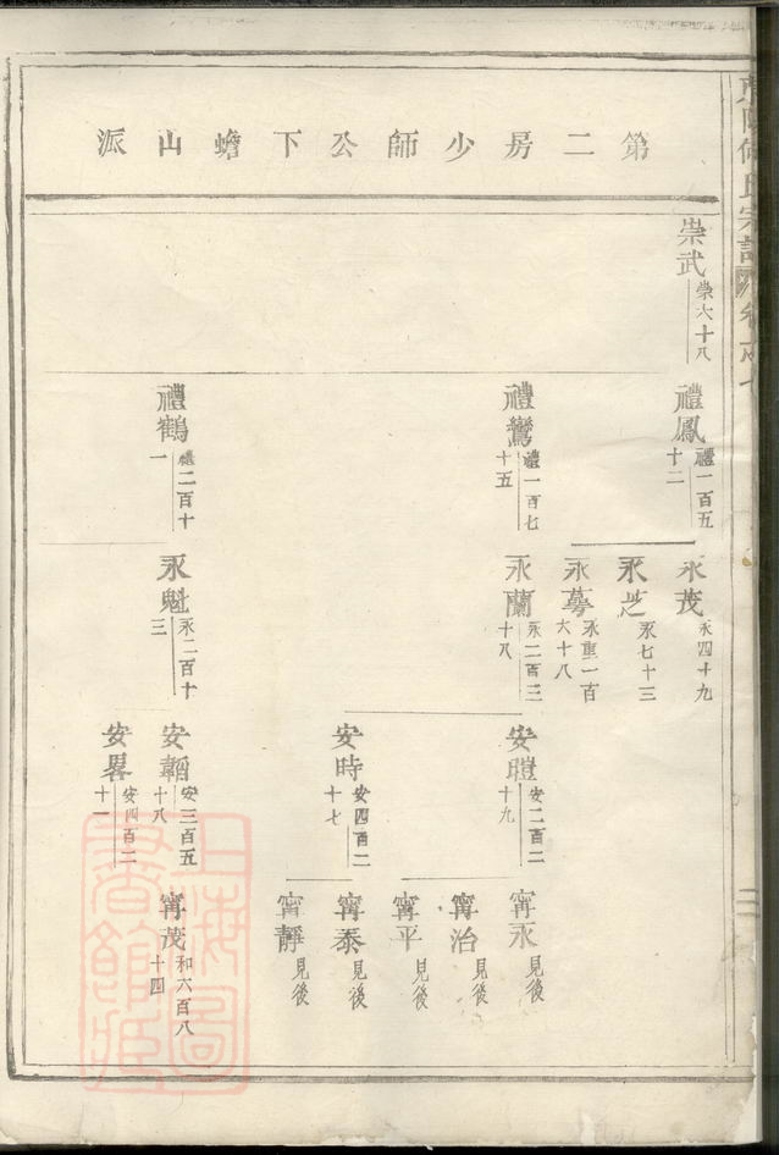 第二房少師公下蟾山派
崇武
崇六十八
禮鳳
禮一百五
十二
禮鸞
禮一百七
十五
禮鶴
禮二百十
一
永茂
永四十九
永芝
永七十三
永募
永重一百
六十八
永蘭
永二百三
十八
永魁
永二百十
三
安暟
安二百二
十九
安時
安四百二
十七
安韜
安三百五
十八
安畧
安四百二
十一
甯永
見後
甯治
見後
甯平
見後
甯泰
見後
甯靜
見後
甯茂
和六百八
十四
上海圖
書館藏
氏宗譜
二